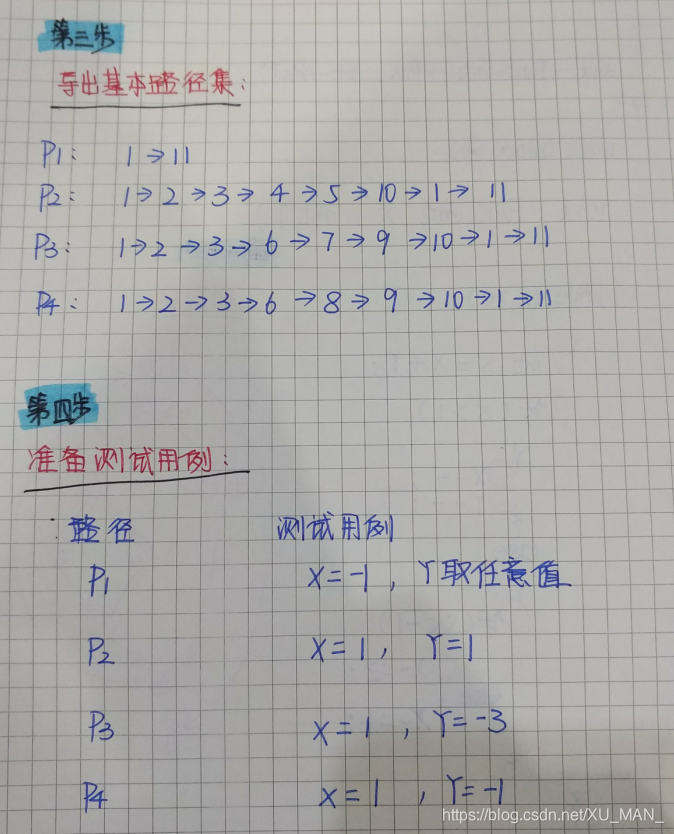 第三步
导出基本路径集:
P1: 1→11
P2: 1→2→3→4→5→10→1→11
P3: 1→2→3→6→7→9→10→1→11
P4: 1→2→3→6→8→9→10→1→11
第四步
准备测试用例:
路径 测试用例
P1 X=-1, Y取任意值
P2 X=1, Y=1
P3 X=1, Y=-3
P4 X=1, Y=-1
https://blog.csdn.net/XU_MAN_